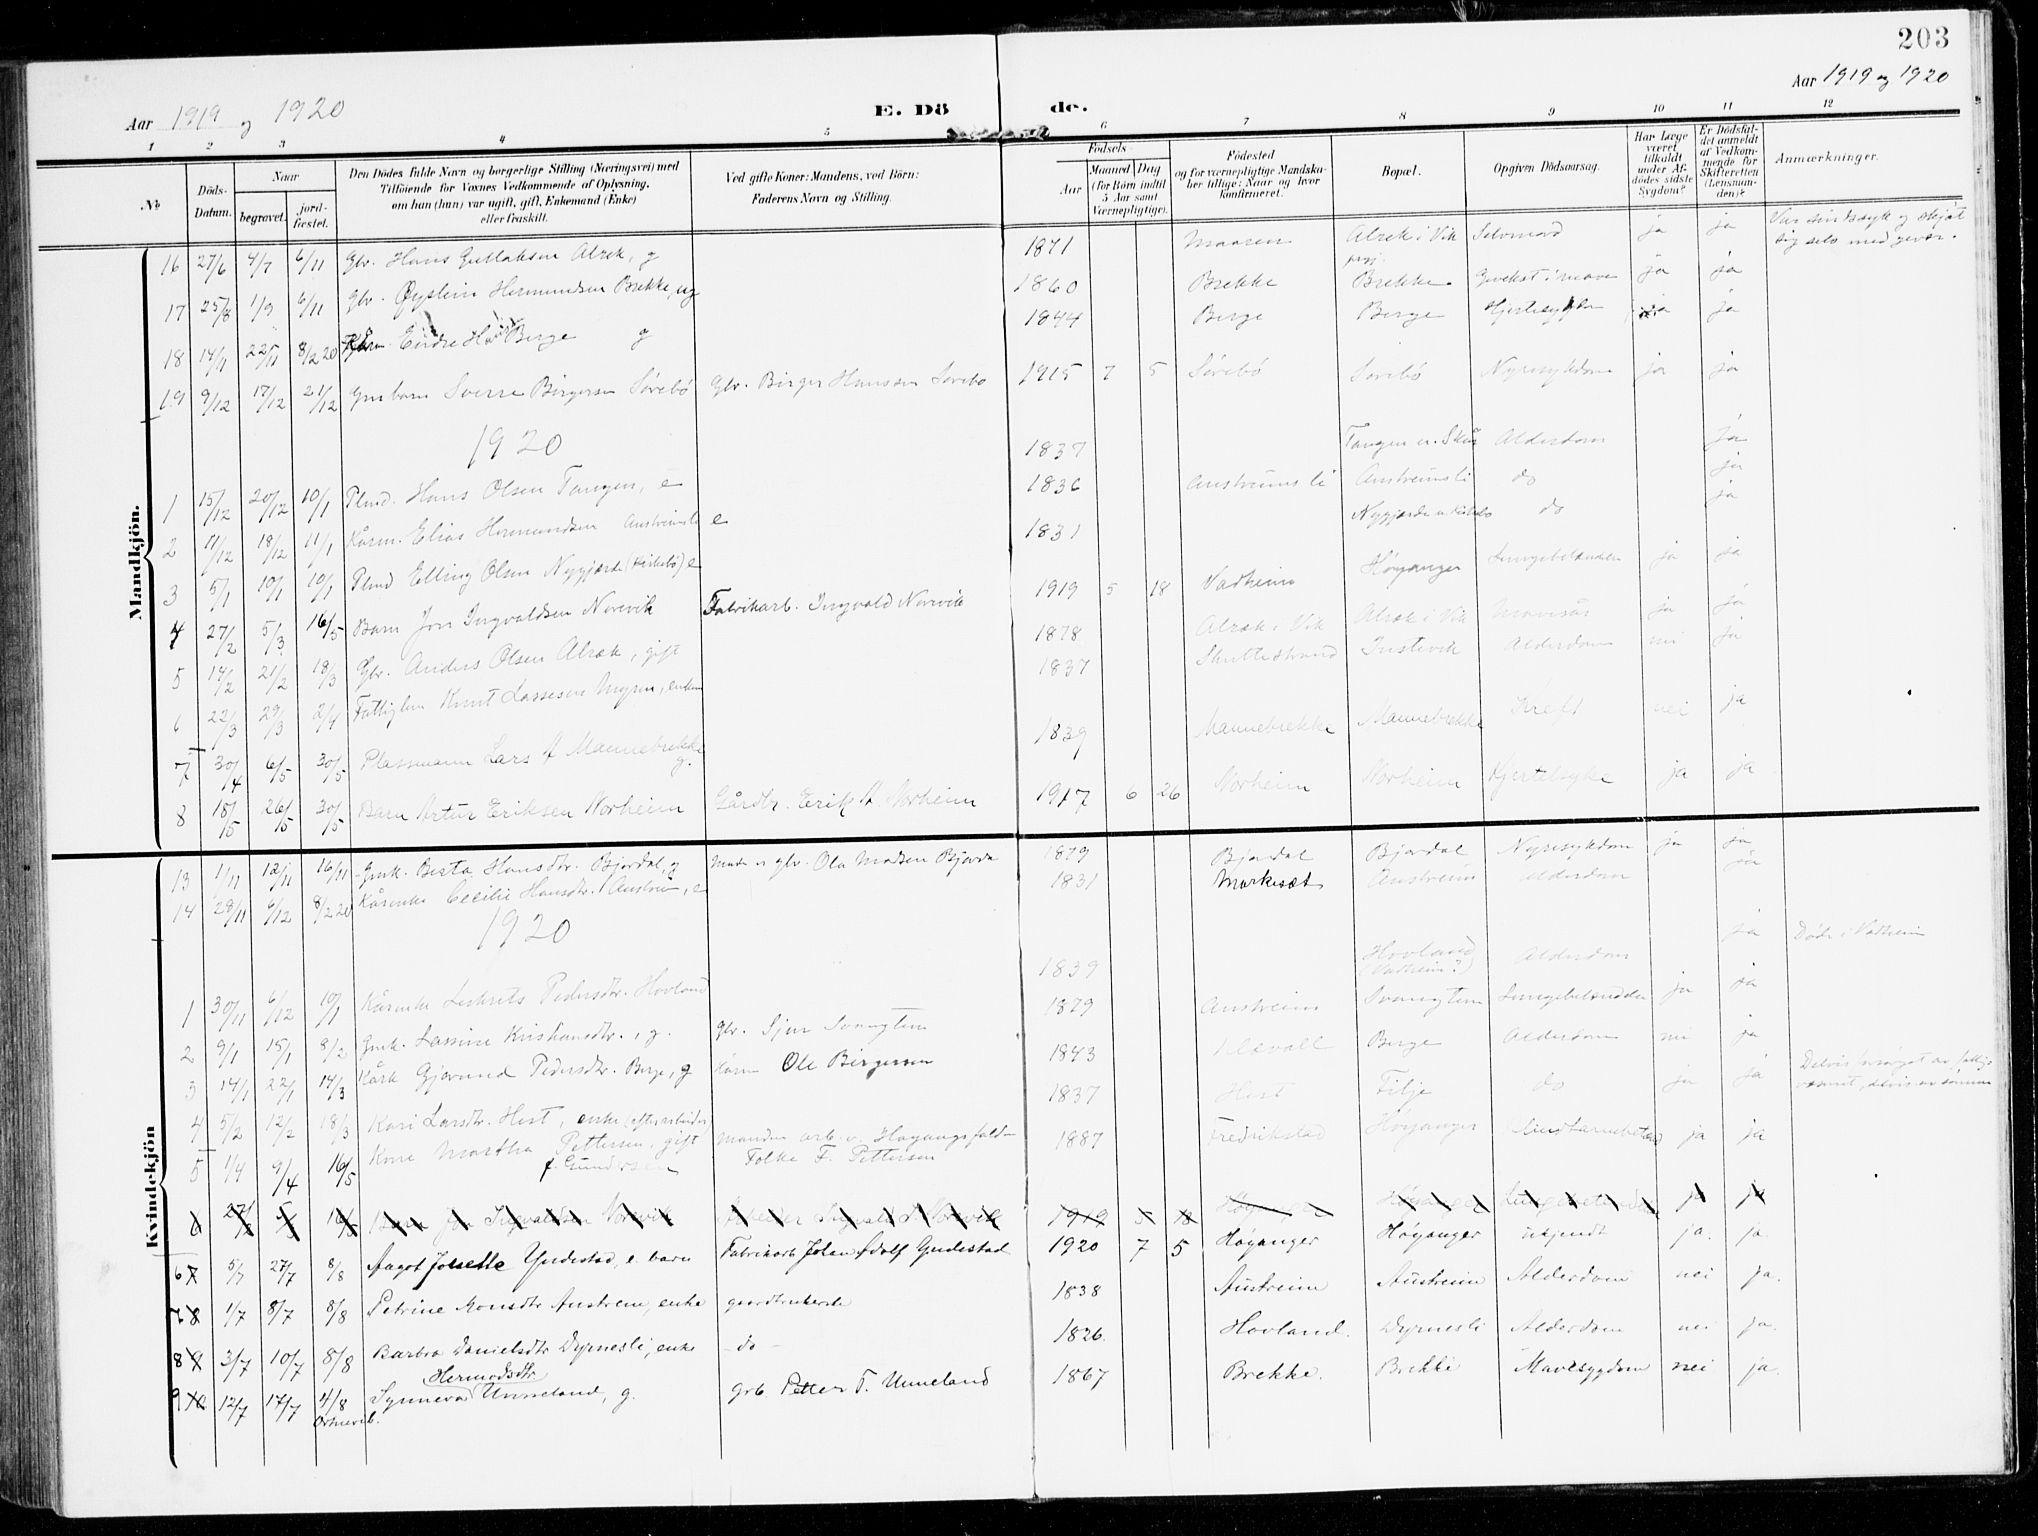 203
Aar 1919 og 1920
E. Dö
de.
Aar 1919 og 1920
1 2 3 4 5 6 7 8 9 10 11 12
No
Döds-Datum.
Naar
begravet.
jord-fæstet.
Den Dödes fulde Navn og borgerlige Stilling (Næringsvei) med
Tilföiende for Voxnes Vedkommende af Oplysning,
om han (hun) var ugift, gift, Enkemand (Enke)
eller fraskilt.
Ved gifte Koner: Mandens, ved Börn:
Faderens Navn og Stilling.
Födsels
Aar
Maaned Dag
(for Börn indtil
5 Aar samt
Værnepligtige).
Födested
og for værnepligtige Mandska-
ber tillige: Naar og hvor
konfirmeret.
Bopæl.
Opgiven Dödsaarsag.
Har Læge
været
tilkaldt
under Af-
dödes sidste
Sygdom?
Er Dödsfal-
det anmeldt
af Vedkom-
mende for
Skifteretten
(Lensman-
den)?
Anmærkninger.
Mandkjön.
16 27/6 4/7 6/11 Gbr. Hans Gullaksen Alræk, g 1871 Maaren Alræk i Vik Selvmord ja ja Var sindssyk og skjøt
sig selv med gevær.
17 25/8 1/9 6/11 Gbr. Øystein Hermundsen Brekke, ug 1860 Brekke Brekke Gvekst i mave ja ja
18 14/11 22/11 8/2 20 Kårm. Eindre Berge g 1844 Berge Berge Hjertesykdom ja ja
19 9/12 17/12 21/12 Gmbarn Sverre Birgersen Sørebø Gbr. Birger Hanssen Sørebø 1915 7 5 Sørebø Sørebø Nyresykdom ja ja
1920
1 15/12 20/12 10/1 Plmd. Hans Olsen Tangen, e 1837 Tangen Alderdom ja
2 11/12 18/12 11/1 Kårm. Elias Hermundsen Austreimsli e 1836 Austreimsli Austreimsli do ja
3 5/1 10/1 10/1 Plmd Elling Olsen Nygjærde (Kirkebø) e 1831 Nygjærde do ja
4 27/2 5/3 16/5 Barn Jon Ingvaldsen Norevik Fabrikarb. Ingvald Norevik 1919 5 18 Vadheim Høyanger Lungebetændelse ja ja
5 14/2 21/2 18/3 Gbr. Anders Olsen Alræk, gift 1878 Alræk i Vik Alræk i Vik Mavesår ja ja
6 22/3 29/3 2/4 Fattiglem Knut Lassesen Myren, enkem 1837 Alderdom nei ja
7 30/4 6/5 30/5 Plassmann Lars A Mannebrekke g. 1839 Mannebrekke Mannebrekke Kreft nei ja
8 18/5 26/5 30/5 Barn Artur Eriksen Norheim Gårdbr. Erik A Norheim 1917 6 26 Norheim Norheim Hjertesyke ja ja
Kvindekjön
13 1/11 12/11 16/11 Gmk. Berta Hansdtr. Bjordal, g Mand: gbr. Ola Madsen Bjordal 1879 Bjordal Bjordal Nyresykdom ja ja
14 28/11 6/12 8/2 20 Kårenke Cecilie Hansdtr. Austreim, e 1831 Markesæt Austreim Alderdom ja
1920
1 30/11 6/12 10/1 Kårenke Pedersdtr. Hovland 1839 Hovland
(Vadheim?) Alderdom ja Døde i Vadheim
2 9/1 15/1 8/2 Gmk. Lassine Kristiansdtr., g. gbr. Sjur 1879 Austreim Lungebetændelse ja ja
3 14/1 22/1 14/3 Kårk Gjørund Pedersdtr. Berge, g Kårm Ole Birgersen 1843 Berge Alderdom nei ja
4 5/2 12/2 18/3 Kari Larsdtr. Hest, enke 1837 Hest Tilje do ja ja
5 1/4 9/4 16/5 Kone Martha Pettersen, gift
f. Gundersen Manden arb. v.
Folke F. Pettersen 1887 Fredrikstad Høyanger ja ja
6 27/2 5/3 16/5 Barn Jon Ingvaldsen Norevik Arbeider Ingvald Norevik 1919 5 18 Høyanger Høyanger Lungebetændelse ja ja
6 7 5/7 27/7 8/8 Aagot Josette Yndestad, e. barn Fabrikarb Johan Adolf Yndestad 1920 7 5 Høyanger Høyanger ukjendt ja. ja.
7 8 1/7 8/7 8/8 Petrine Monsdtr Austreim, enke gaardbrukerske 1838 Austreim Austreim Alderdom nei ja.
8 9 3/7 10/7 8/8 Barbra Danielsdtr Dyrnesli, enke - do - 1826. Hovland. Dyrnesli Alderdom nei ja.
9 10 12/7 17/7 4/8 Synneva Hermodsdtr Unneland, g. grb. Petter T. Unneland 1867 Brekke. Brekke Mavesygdom nei ja.